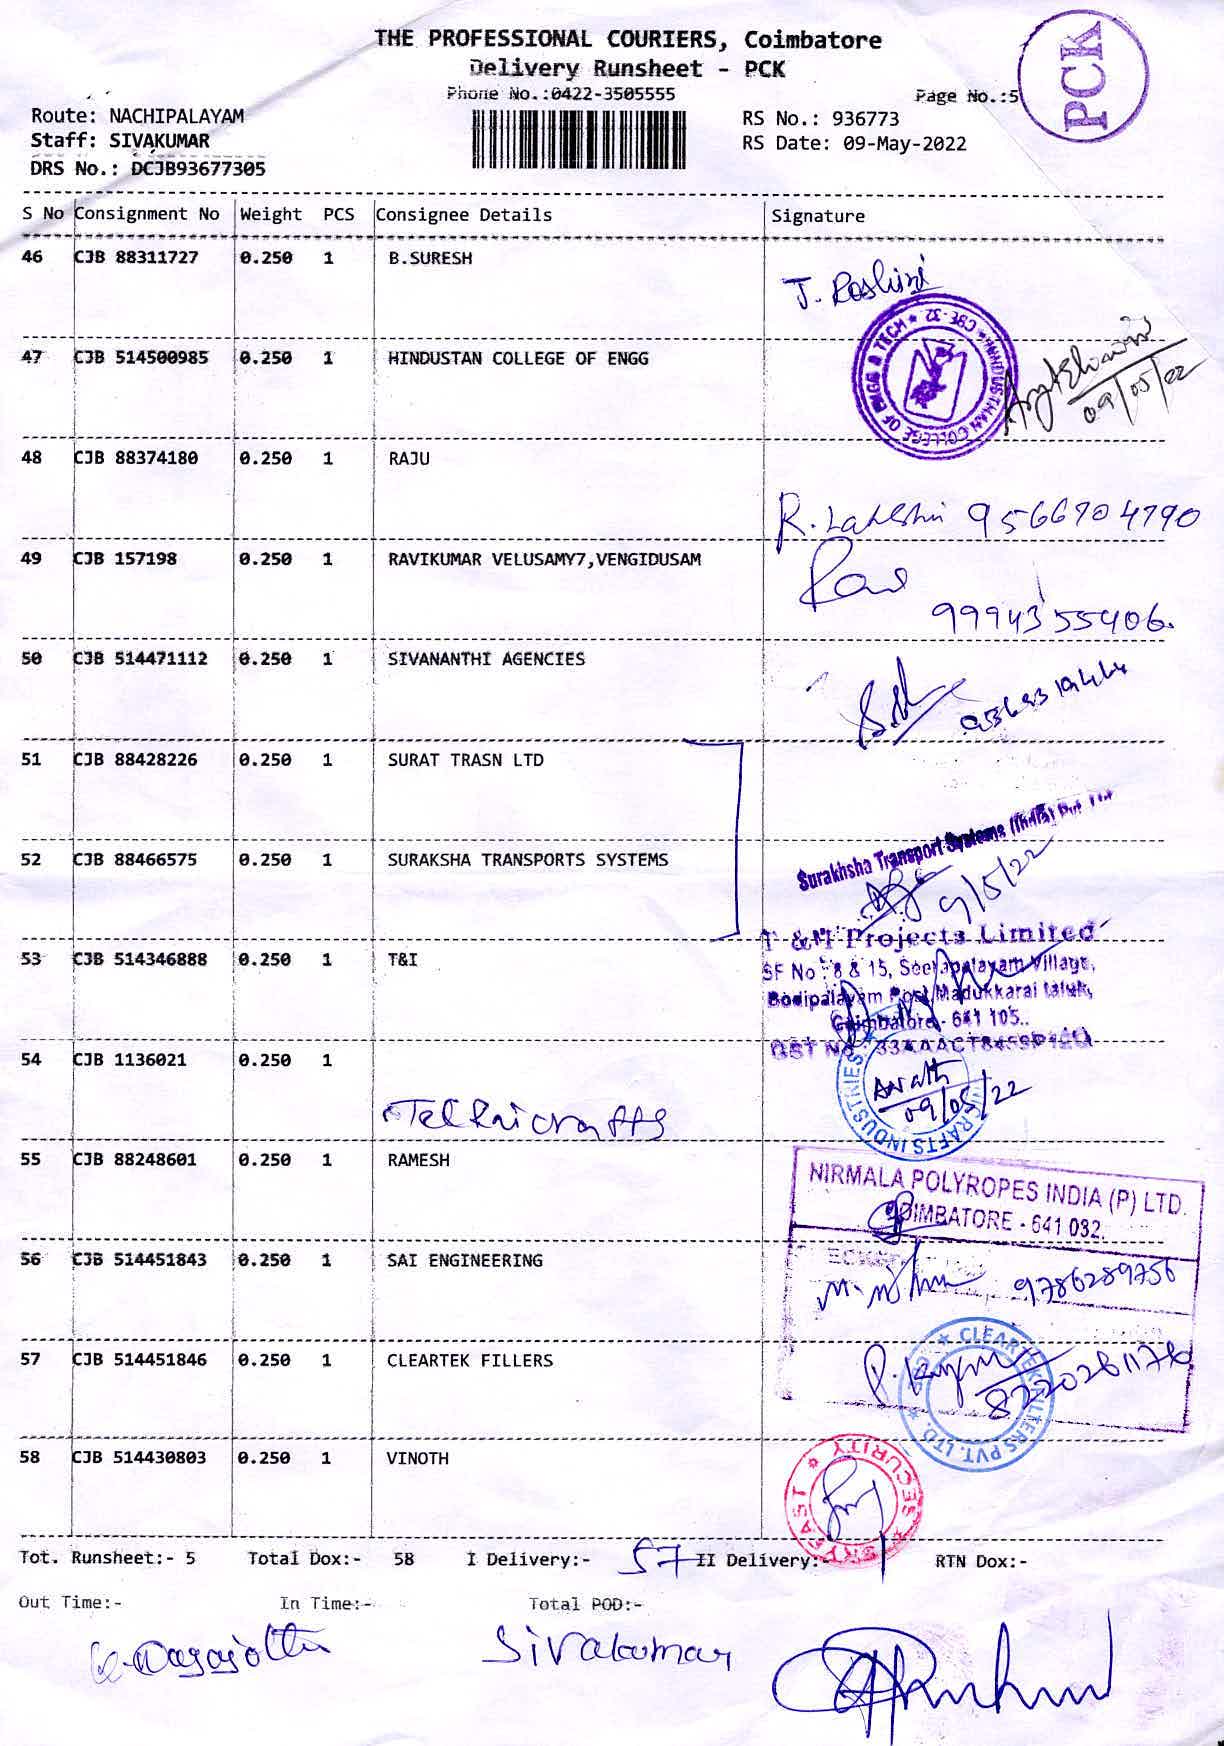 THE PROFESSIONAL COURIERS, Coimbatore
Delivery Runsheet - PCK
Phone No.:0422-3505555
Page No.:5
PCK
Route: NACHIPALAYAM
RS No.: 936773
Staff: SIVAKUMAR
RS Date: 09-May-2022
DRS No.: DCJB93677305
S No Consignment No Weight PCS Consignee Details Signature
46 CJB 88311727 0.250 1 B.SURESH
J. Roshini
47 CJB 514500985 0.250 1 HINDUSTAN COLLEGE OF ENGG
HINDUSTHAN COLLEGE OF ENGG & TECH ★ CBE-32 ★
09/05/22
48 CJB 88374180 0.250 1 RAJU
R. Lakshmi 9566704790
49 CJB 157198 0.250 1 RAVIKUMAR VELUSAMY7,VENGIDUSAM
Ravi
9994355406.
50 CJB 514471112 0.250 1 SIVANANTHI AGENCIES
51 CJB 88428226 0.250 1 SURAT TRASN LTD
Surakhsha Transport Systems (India) Pvt Ltd
52 CJB 88466575 0.250 1 SURAKSHA TRANSPORTS SYSTEMS
9/5/22
T & I Projects Limited
53 CJB 514346888 0.250 1 T&I
SF No : 8 & 15, Seerapalayam Village,
Bodipalayam Post, Madukkarai taluk,
Coimbatore - 641 105.
GST No
54 CJB 1136021 0.250 1
Technicrafts
09/05/22
CRAFTS INDUSTRIES
55 CJB 88248601 0.250 1 RAMESH
NIRMALA POLYROPES INDIA (P) LTD.
COIMBATORE - 641 032.
56 CJB 514451843 0.250 1 SAI ENGINEERING
9786289756
57 CJB 514451846 0.250 1 CLEARTEK FILLERS
CLEARTEK FILTERS PVT. LTD.
58 CJB 514430803 0.250 1 VINOTH
SKYFAST ★ SECURITY ★
Tot. Runsheet:- 5 Total Dox:- 58 I Delivery:- 57 II Delivery:- RTN Dox:-
Out Time:- In Time:- Total POD:-
Sivakumar